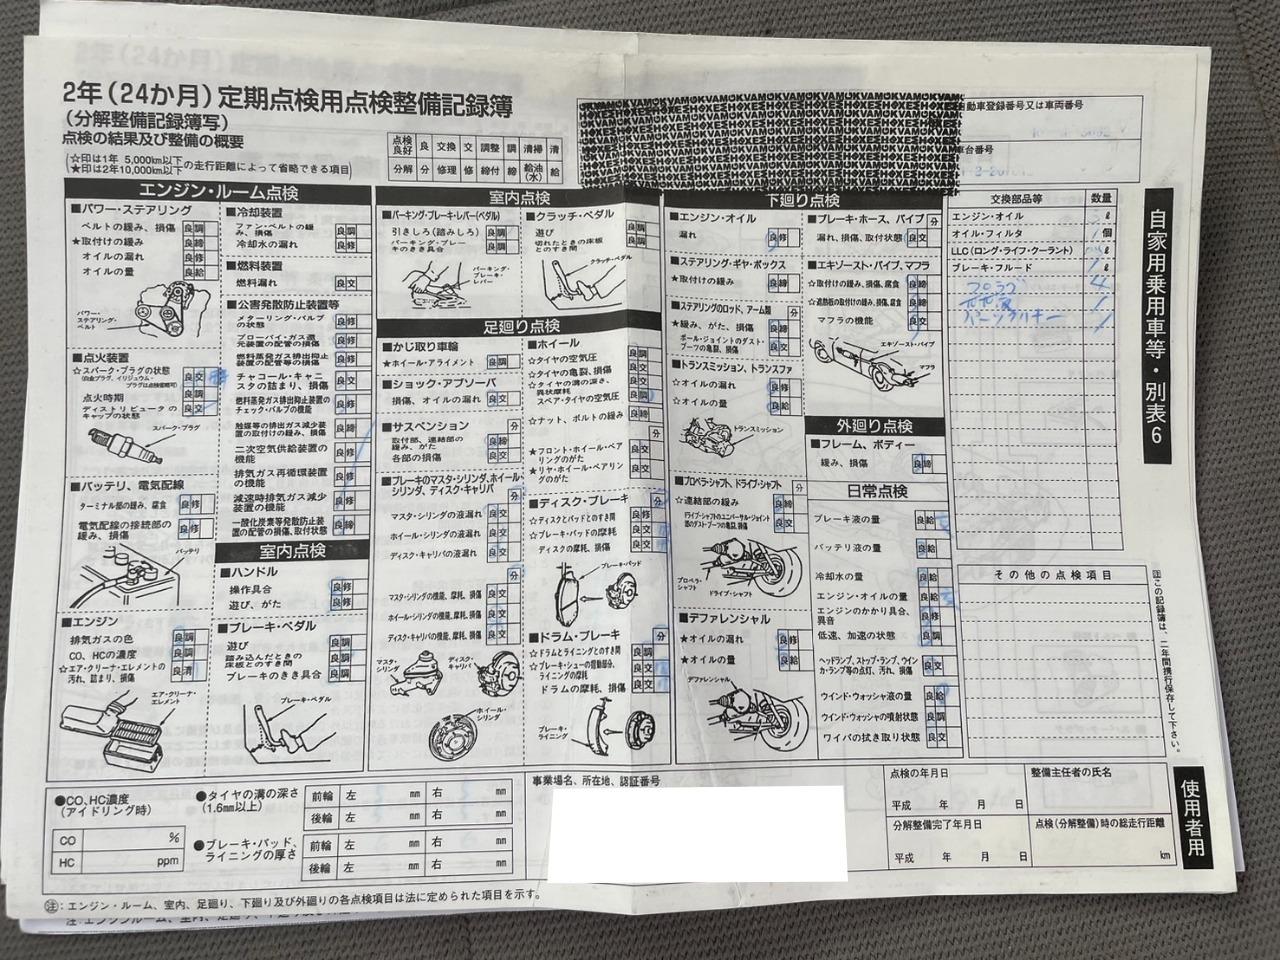 2年(24か月)定期点検用点検整備記録簿
(分解整備記録簿写)
点検の結果及び整備の概要
(☆印は1年 5,000km以下
★印は2年10,000km以下の走行距離によって省略できる項目)
点検良好 良 交換 交 調整 調 清掃 清
分解 分 修理 修 締付 締 給油(水) 給
自動車登録番号又は車両番号
車台番号
エンジン・ルーム点検
■パワー・ステアリング
ベルトの緩み、損傷 良 調
★取付けの緩み 良 締
オイルの漏れ 良 修
オイルの量 良 給
パワー・ステアリング・ベルト
■点火装置
☆スパーク・プラグの状態 良 交
点火時期 良 調
ディストリビュータのキャップの状態 良 交
スパーク・プラグ
■バッテリ、電気配線
ターミナル部の緩み、腐食 良 修
電気配線の接続部の緩み、損傷 良 修
バッテリ
■エンジン
排気ガスの色 良 調
CO、HCの濃度 良 調
☆エア・クリーナ・エレメントの汚れ、詰まり、損傷 良 清
エア・クリーナ・エレメント
■冷却装置
ファン・ベルトの緩み、損傷 良 調
冷却水の漏れ 良 修
■燃料装置
燃料漏れ 良 交
■公害発散防止装置等
メターリング・バルブの状態 良 修
ブローバイ・ガス還元装置の配管の損傷 良 修
燃料蒸発ガス排出抑止装置の配管等の損傷 良 修
チャコール・キャニスタの詰まり、損傷 良 交
燃料蒸発ガス排出抑止装置のチェック・バルブの機能 良 修
触媒等の排出ガス減少装置の取付けの緩み、損傷 良 締
二次空気供給装置の機能 良 修
排気ガス再循環装置の機能 良 修
減速時排気ガス減少装置の機能 良 修
一酸化炭素等発散防止装置の配管の損傷、取付状態 良 締
室内点検
■ハンドル
操作具合 良 修
遊び、がた 良 修
■ブレーキ・ペダル
遊び 良 調
踏み込んだときの床板とのすき間 良 調
ブレーキのきき具合 良 調
ブレーキ・ペダル
室内点検
■パーキング・ブレーキ・レバー(ペダル)
引きしろ(踏みしろ) 良 調
パーキング・ブレーキのきき具合 良 調
パーキング・ブレーキ・レバー
■クラッチ・ペダル
遊び 良 調
切れたときの床板とのすき間 良 調
クラッチ・ペダル
足廻り点検
■かじ取り車輪
★ホイール・アライメント 良 調
■ショック・アブソーバ
損傷、オイルの漏れ 良 交
■サスペンション
取付部、連結部の緩み、がた 良 締
各部の損傷 良 交
■ブレーキのマスタ・シリンダ、ホイール・シリンダ、ディスク・キャリパ 分
マスタ・シリンダの液漏れ 良 交
ホイール・シリンダの液漏れ 良 交
ディスク・キャリパの液漏れ 良 交
分
マスタ・シリンダの機能、摩耗、損傷 良 交
ホイール・シリンダの機能、摩耗、損傷 良 交
ディスク・キャリパの機能、摩耗、損傷 良 交
マスタ・シリンダ
ディスク・キャリパ
ホイール・シリンダ
■ホイール
☆タイヤの空気圧
☆タイヤの亀裂、損傷
☆タイヤの溝の深さ、異状摩耗
スペア・タイヤの空気圧
☆ナット、ボルトの緩み
分
★フロント・ホイール・ベアリングのがた
★リヤ・ホイール・ベアリングのがた
■ディスク・ブレーキ 分
☆ディスクとパッドとのすき間
☆ブレーキ・パッドの摩耗
ディスクの摩耗、損傷
ブレーキ・パッド
■ドラム・ブレーキ 分
☆ドラムとライニングとのすき間 良 調
☆ブレーキ・シューの摺動部分、ライニングの摩耗 良 交
ドラムの摩耗、損傷 良 交
ブレーキ・ライニング
下廻り点検
■エンジン・オイル
漏れ 良 修
■ステアリング・ギヤ・ボックス
★取付けの緩み 良 締
■ステアリングのロッド、アーム類 分
★緩み、がた、損傷 良 締
ボール・ジョイントのダスト・ブーツの亀裂、損傷 良 交
■トランスミッション、トランスファ
☆オイルの漏れ 良 修
☆オイルの量 良 給
トランスミッション
■プロペラ・シャフト、ドライブ・シャフト 分
☆連結部の緩み 良 締
ドライブ・シャフトのユニバーサル・ジョイント部のダストブーツの亀裂、損傷 良 交
プロペラ・シャフト
ドライブ・シャフト
■デファレンシャル
★オイルの漏れ 良 修
★オイルの量 良 給
デファレンシャル
■ブレーキ・ホース、パイプ 分
漏れ、損傷、取付状態 良 交
■エキゾースト・パイプ、マフラ
☆取付けの緩み、損傷、腐食 良 交
☆遮熱板の取付けの緩み、損傷、腐食 良 締
マフラの機能 良 交
エキゾースト・パイプ
マフラ
外廻り点検
■フレーム、ボディー
緩み、損傷 良 締
日常点検
ブレーキ液の量 良 給
バッテリ液の量 良 給
冷却水の量 良 給
エンジン・オイルの量 良 給
エンジンのかかり具合、異音 良 修
低速、加速の状態 良 調
ヘッドランプ、ストップ・ランプ、ウインカ・ランプ等の点灯、汚れ、損傷 良 交
ウインド・ウォッシャ液の量 良 給
ウインド・ウォッシャの噴射状態 良 調
ワイパの拭き取り状態 良 交
交換部品等 数量
エンジン・オイル ℓ
オイル・フィルタ 個
LLC(ロング・ライフ・クーラント) ℓ
ブレーキ・フルード 1 ℓ
プラグ 4
パーツクリナー 1
その他の点検項目
自家用乗用車等・別表6
注この記録簿は、二年間携行保存して下さい。
使用者用
●CO、HC濃度
(アイドリング時)
CO %
HC ppm
●タイヤの溝の深さ
(1.6mm以上)
前輪 左 mm 右 mm
後輪 左 mm 右 mm
●ブレーキ・パッド、ライニングの厚さ
前輪 左 mm 右 mm
後輪 左 mm 右 mm
事業場名、所在地、認証番号
点検の年月日
平成 年 月 日
整備主任者の氏名
分解整備完了年月日
平成 年 月 日
点検(分解整備)時の総走行距離
km
注:エンジン・ルーム、室内、足廻り、下廻り及び外廻りの各点検項目は法に定められた項目を示す。